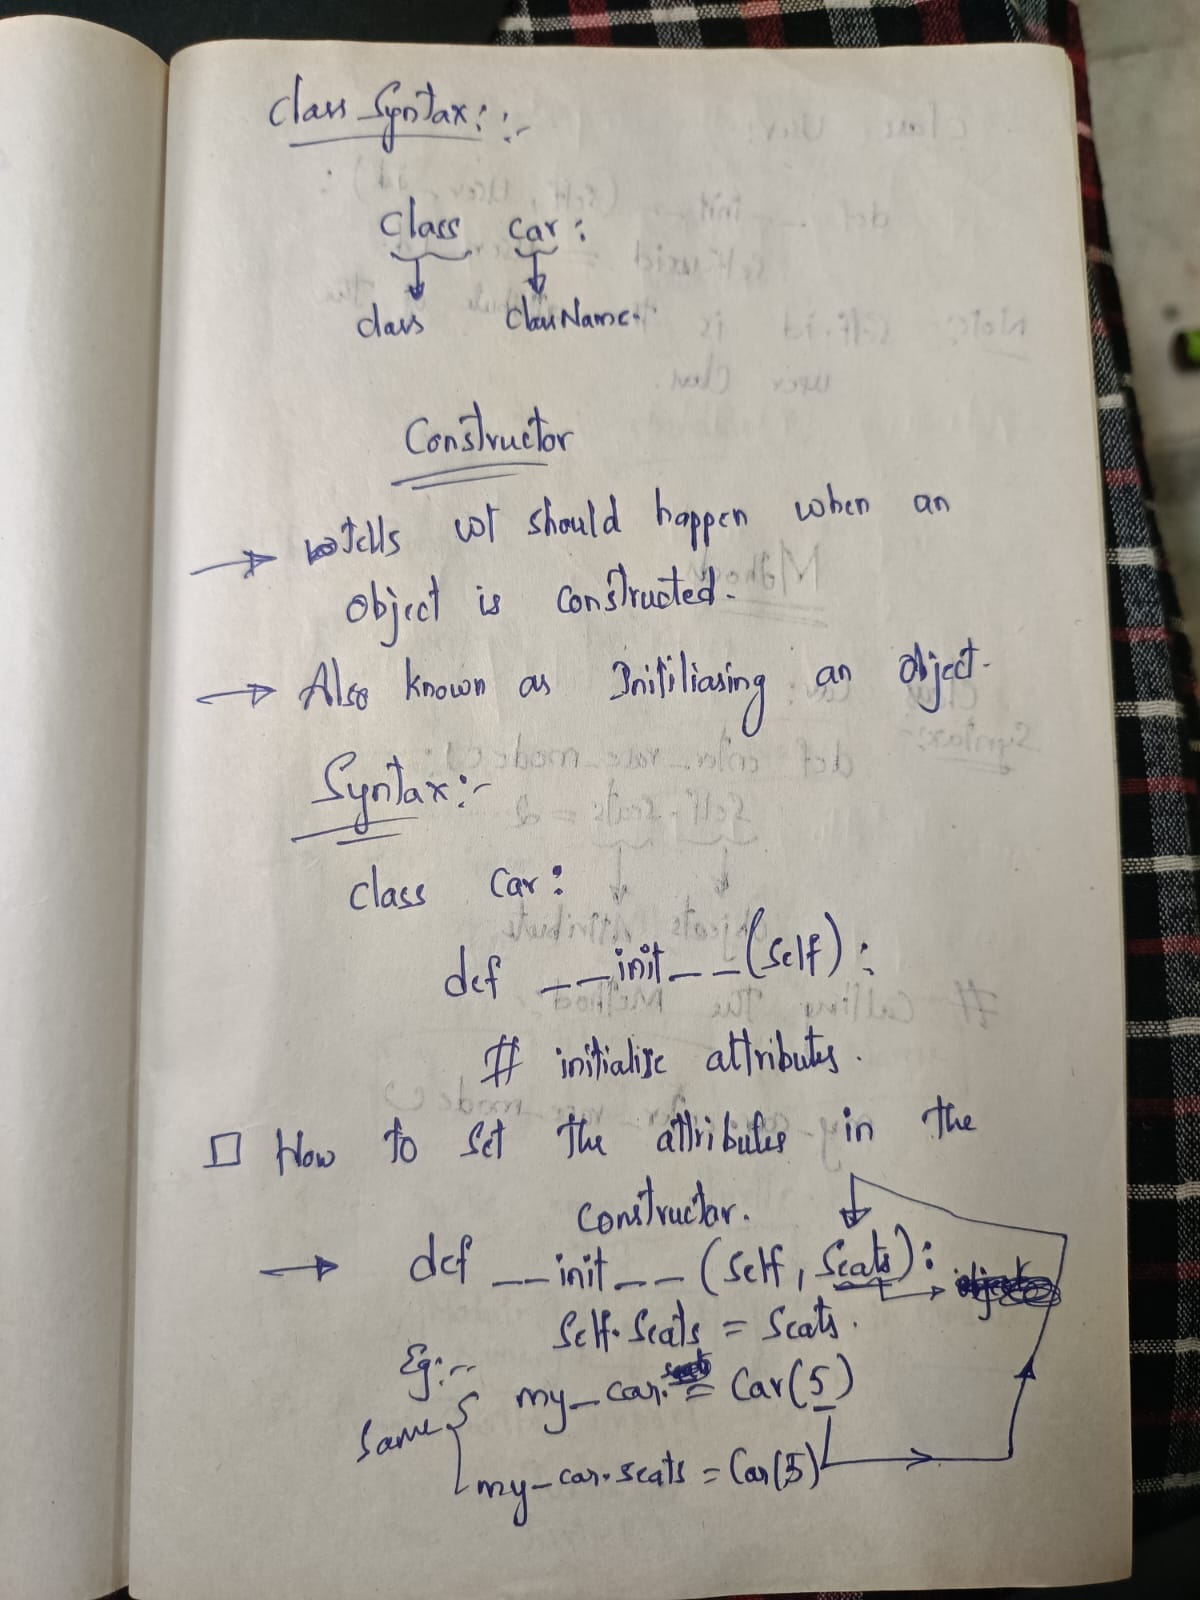 Class Syntax: :-
Class Car :
class ClassName.
Constructor
→ Tells wt should happen when an
object is constructed.
→ Also known as Initiliasing an object.
Syntax:-
class Car :
def __init__(self) :
# initialize attributes.
□ How to set the attributes in the
Constructor.
→ def __init__(self, seats):
self.seats = seats.
Eg:-
my_car. = Car(5)
Same
my_car.seats = Car(5)